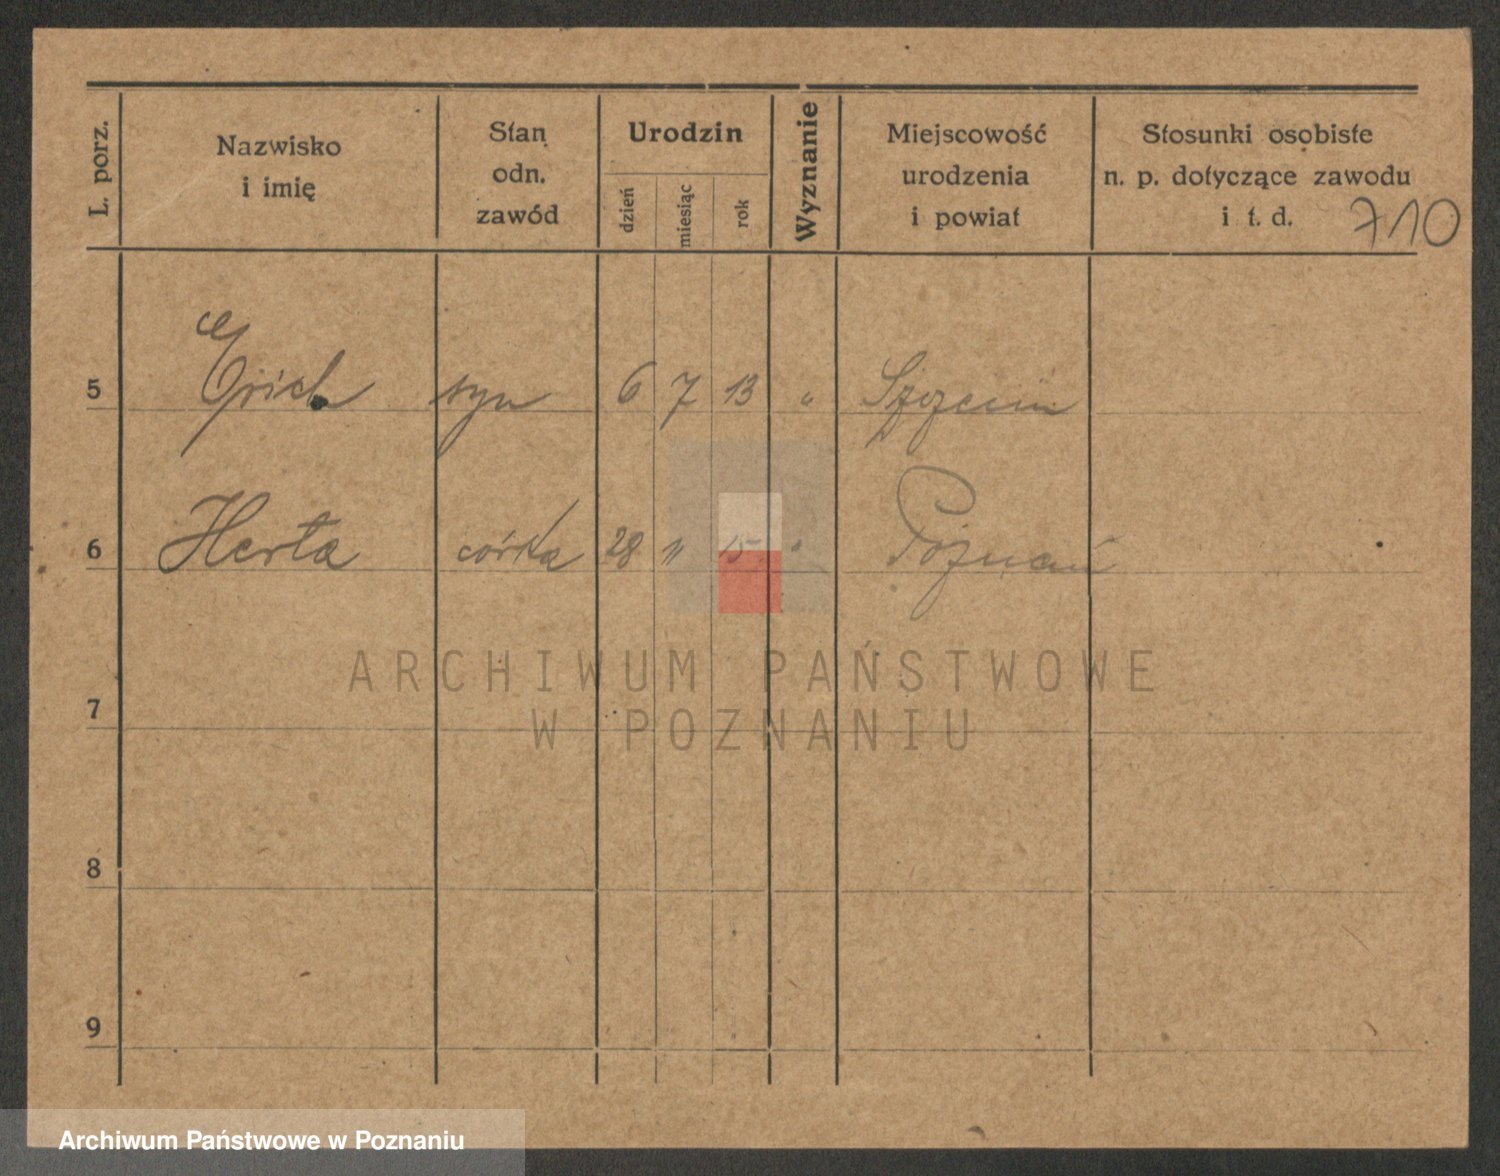 L. porz.
Nazwisko
i imię
Stan
odn.
zawód
Urodzin
dzień
miesiąc
rok
Wyznanie
Miejscowość
urodzenia
i powiat
Stosunki osobiste
n. p. dotyczące zawodu
i t. d.
710
5 Erich syn 6 7 13 " Szczecin
6 Herta córka 28 11 15 " Poznań
ARCHIWUM PAŃSTWOWE
W POZNANIU
7
8
9
Archiwum Państwowe w Poznaniu